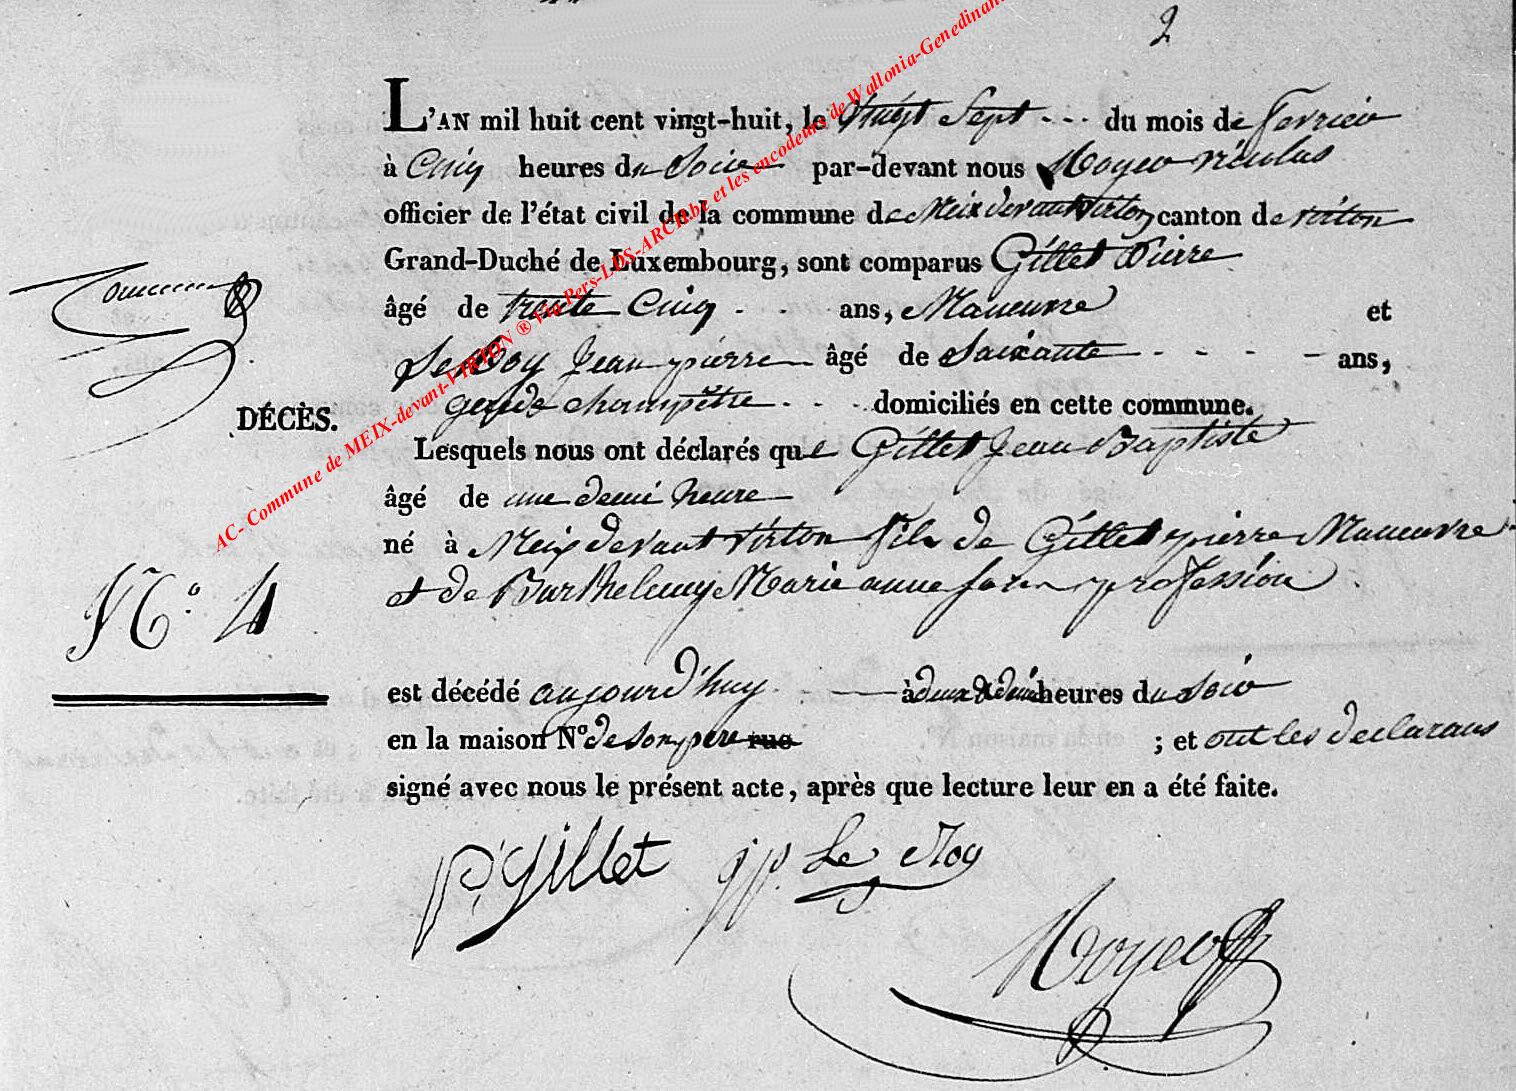 2
L'AN mil huit cent vingt-huit, le vingt Sept du mois de fevrier
à Cinq heures du Soir par-devant nous Moyeo nicolas
officier de l'état civil de la commune de Meix devant virton canton de virton
Grand-Duché de Luxembourg, sont comparus Gillet Pierre
âgé de trente Cinq ans, Maneuvre et
Le Roy Jean pierre âgé de Saixante ans,
garde champêtre domiciliés en cette commune.
DÉCÈS.
Lesquels nous ont déclarés que Gillet Jean Baptiste
âgé de une demi heure
né à Meix devant virton fils de Gillet pierre Maneuvre
et de Barthelemy Marie anne sans profession
N° 4
est décédé aujourd'huy à deux & demi heures du Soir
en la maison N° de son pere rue ; et ont les declarans
signé avec nous le présent acte, après que lecture leur en a été faite.
P. Gillet jp. Le Roy
Moyeo
AC- Commune de MEIX-devant-VIRTON ® Via Pers-LDS-ARCH.be et les encodeurs de Wallonia-Genedinant